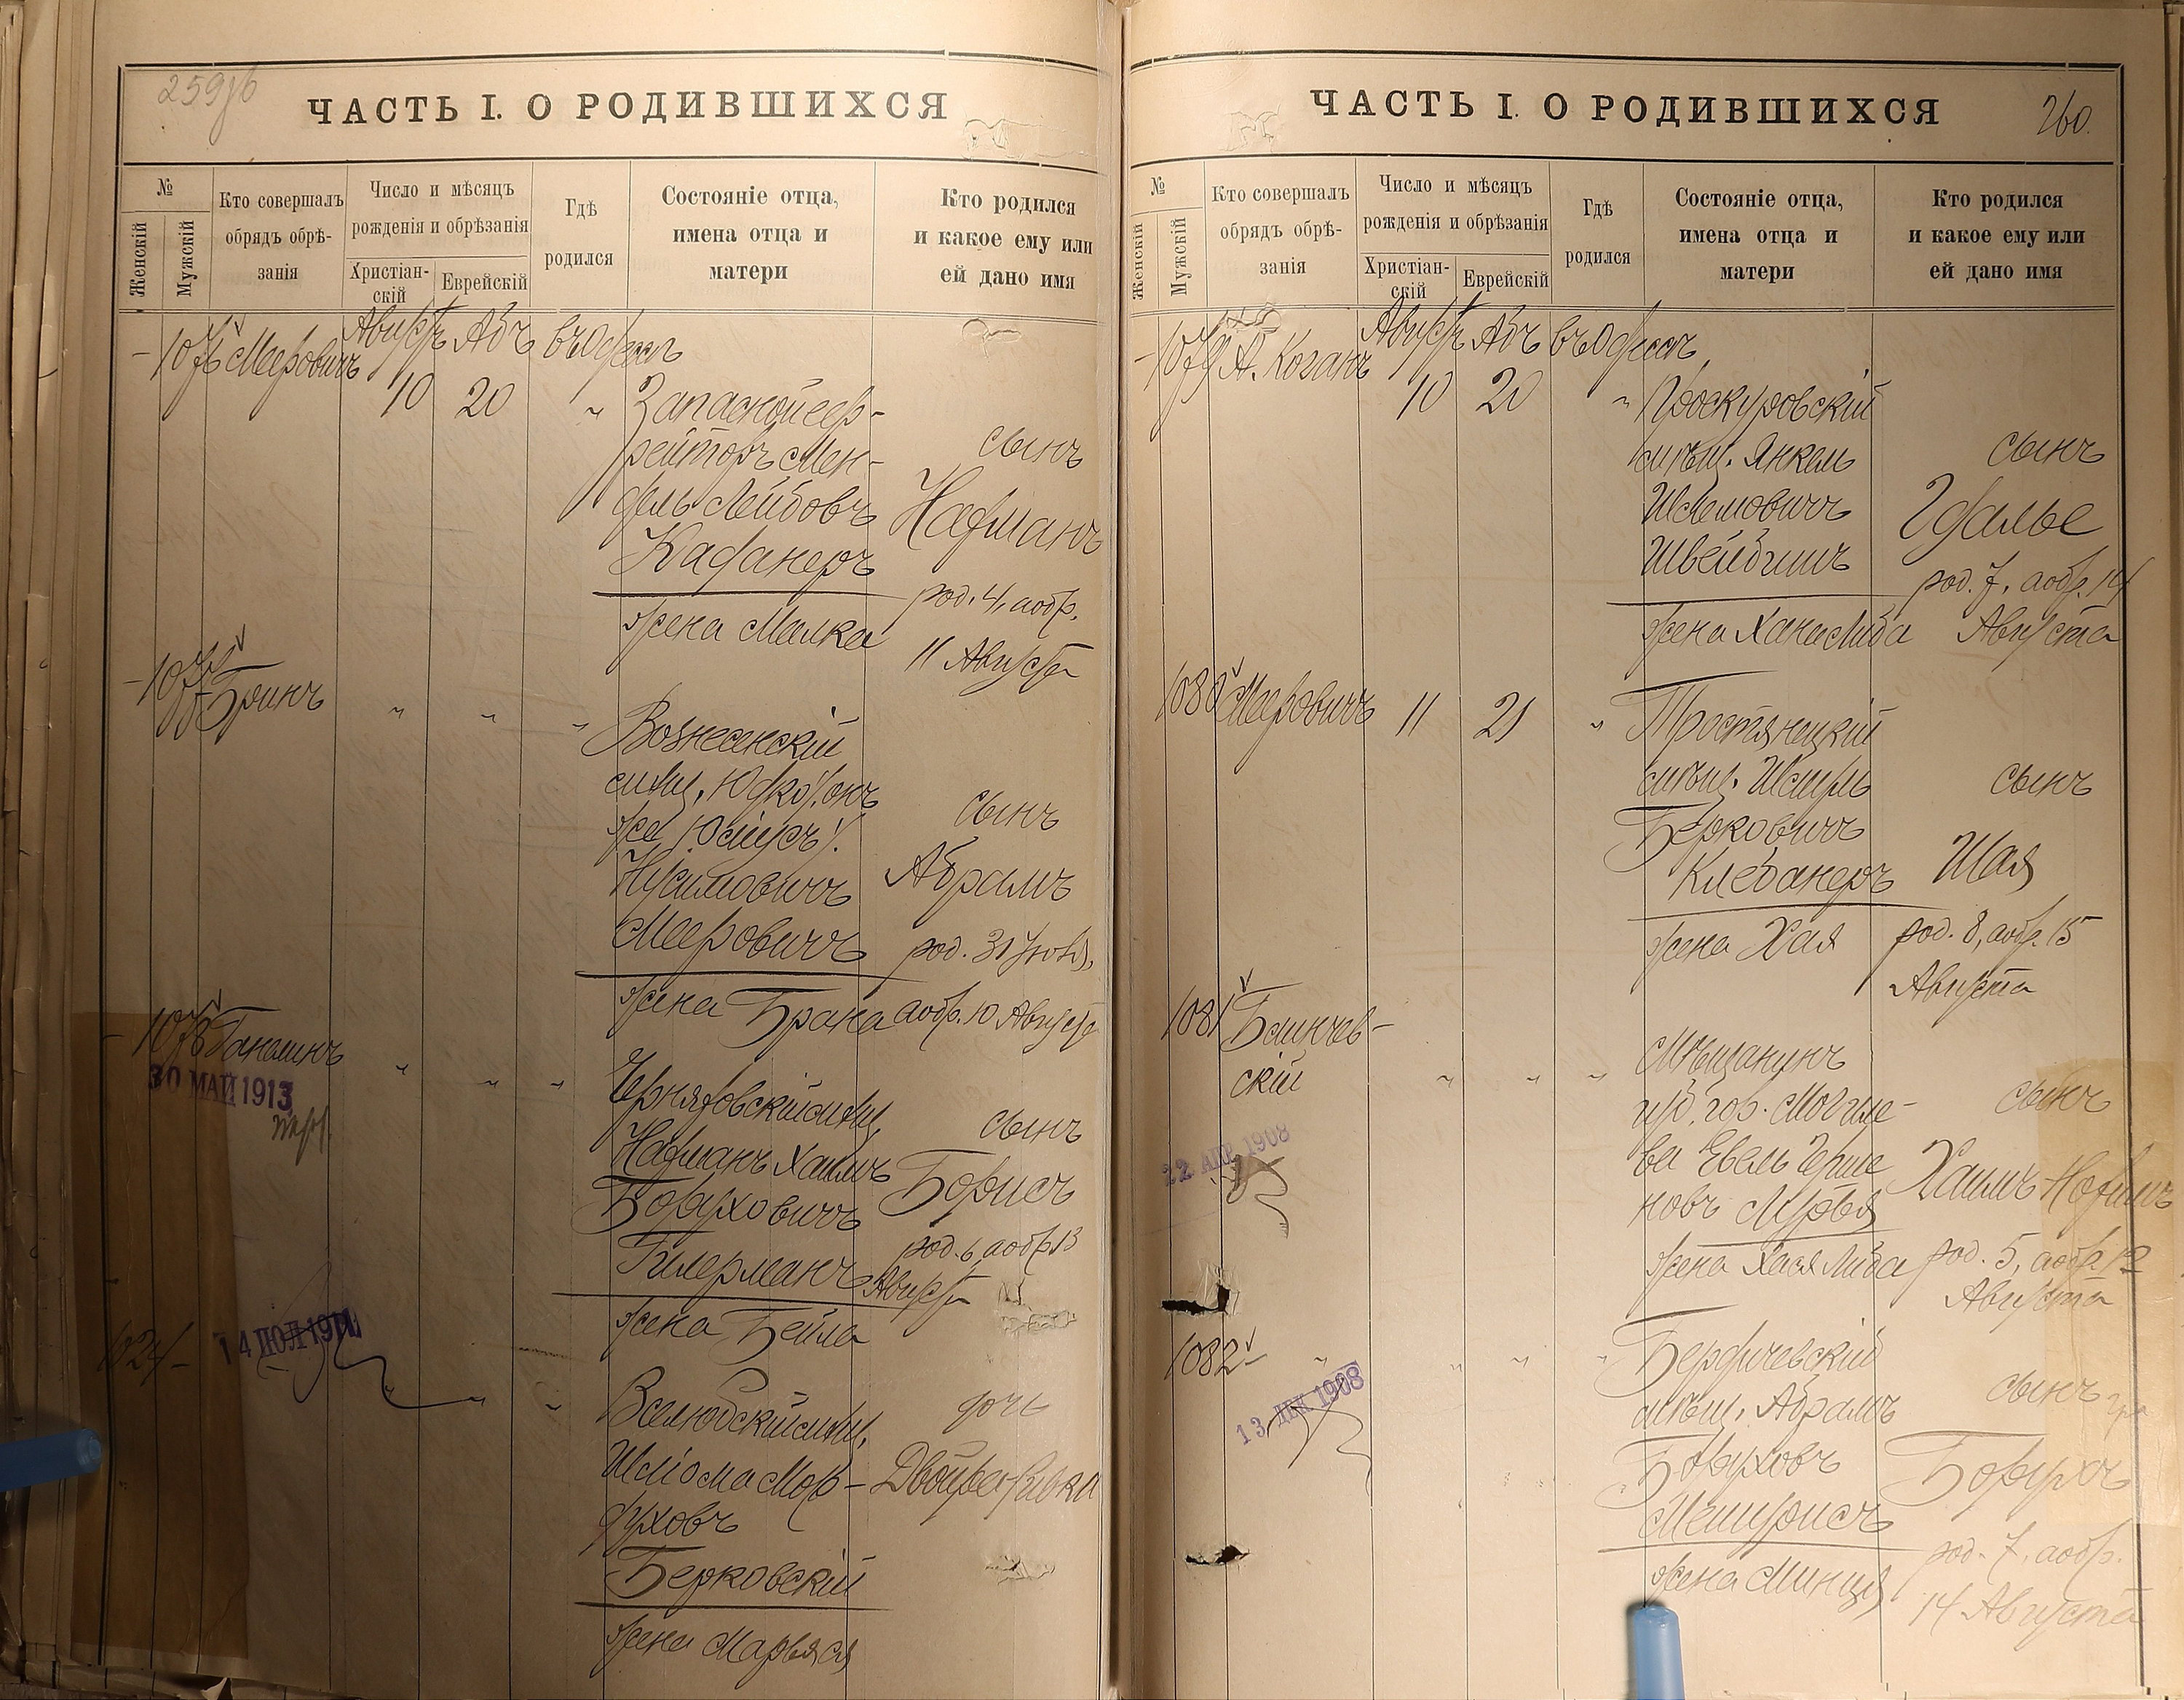 ЧАСТЬ I. О РОДИВШИХСЯ
№
Женскій
Мужскій
Кто совершалъ
обрядъ обрѣ-
занія
Число и мѣсяцъ
рожденія и обрѣзанія
Христіан-
скій
Еврейскій
Гдѣ
родился
Состояніе отца,
имена отца и
матери
Кто родился
и какое ему или
ей дано имя
1076 Мееровичъ
Августъ Абъ въ Одессѣ
10 20 "
Запасной еф-
рейторъ Мен-
дель Лейбовъ
Каданеръ
жена Малка
сынъ
Нахманъ
род. 4, а обр.
11 Августа
1077 Бринъ " " "
Вознесенскій
мѣщ. Юдко /онъ
же Юсипъ/.
Нусимовичъ
Мееровичъ
жена Брана
сынъ
Абрамъ
род. 31 Іюля,
а обр. 10 Августа
1078 Ганелинъ " " "
30 МАЙ 1913
Черняховскій мѣщ.
Нахманъ Хаимъ
Боруховичъ
Гилерманъ
жена Бейла
сынъ
Борисъ
род. 6, а обр. 13
Августа
1024 -
" "
Вселюбскій мѣщ.
Шліома Мор-
духовъ
Берковскій
жена Марьяся
дочь
Двойра-Ривка
ЧАСТЬ I. О РОДИВШИХСЯ
260.
№
Женскій
Мужскій
Кто совершалъ
обрядъ обрѣ-
занія
Число и мѣсяцъ
рожденія и обрѣзанія
Христіан-
скій
Еврейскій
Гдѣ
родился
Состояніе отца,
имена отца и
матери
Кто родился
и какое ему или
ей дано имя
1079 А. Коганъ
Августъ Абъ въ Одессѣ
10 20 "
Проскуровскій
мѣщ. Янкель
Шлемовичъ
Швейбишъ
жена Хана Либа
сынъ
Гдалье
род. 7, а обр. 14
Августа
1080 Мееровичъ 11 21 "
Тростянецкій
мѣщ. Шмиль
Берковичъ
Клебанеръ
жена Хая
сынъ
Шая
род. 8, а обр. 15
Августа
1081 Блинчев-
скій " " "
22 АПР 1908
Мѣщанинъ
губ. гор. Могиле-
ва Евель Герше
новъ Лурья
жена Хася Либа
сынъ
Хаимъ
род. 5, а обр. 12
Августа
1082 " " " "
13 1908
Бердичевскій
мѣщ. Абрамъ
Боруховъ
жена Минця
сынъ
Борухъ
род. 7, а обр.
14 Августа